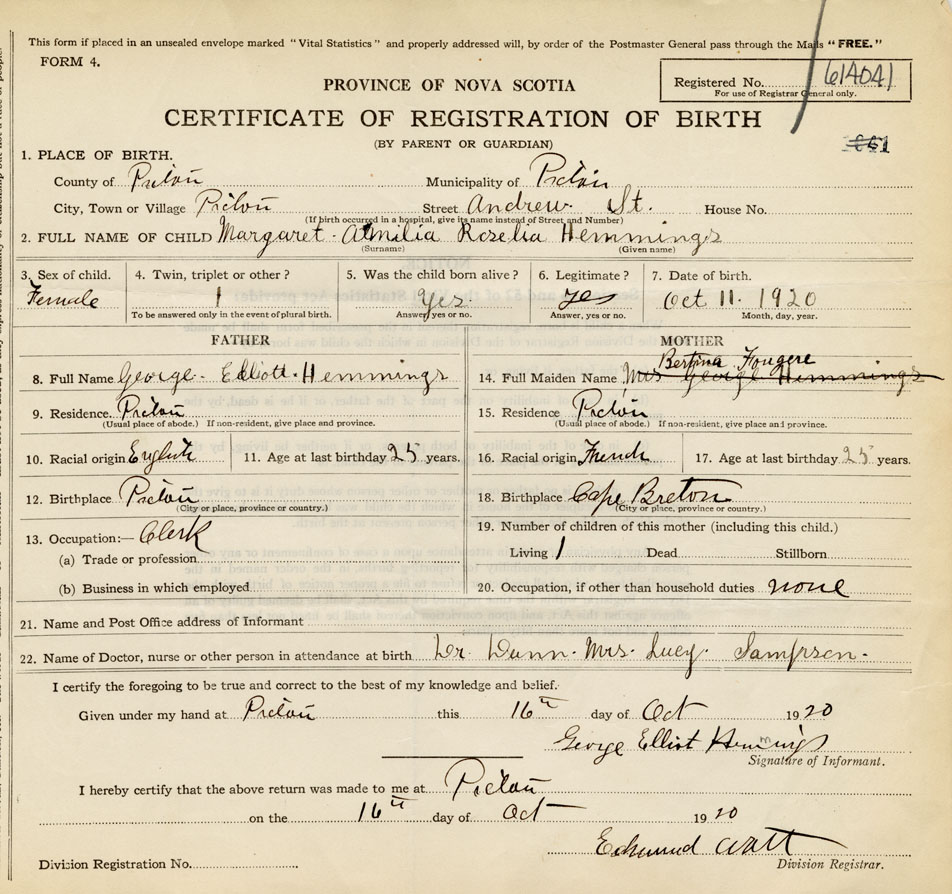 This form if placed in an unsealed envelope marked "Vital Statistics" and properly addressed will, by order of the Postmaster General pass through the Mails "FREE."
FORM 4.
Registered No. 614041
For use of Registrar General only.
PROVINCE OF NOVA SCOTIA
CERTIFICATE OF REGISTRATION OF BIRTH
(BY PARENT OR GUARDIAN)
1. PLACE OF BIRTH.
County of Pictou Municipality of Pictou
City, Town or Village Pictou Street Andrew St. House No.
(If birth occurred in a hospital, give its name instead of Street and Number)
2. FULL NAME OF CHILD Margaret Rozelia Hemmings
(Surname) (Given name)
3. Sex of child. 4. Twin, triplet or other? 5. Was the child born alive? 6. Legitimate? 7. Date of birth.
Female 1 Yes. yes Oct 11. 1920
To be answered only in the event of plural birth. Answer, yes or no. Answer, yes or no. Month, day, year.
FATHER MOTHER
Bertina Fougere
8. Full Name George Elliott Hemmings 14. Full Maiden Name Mrs George Hemmings
9. Residence. Pictou 15. Residence Pictou
(Usual place of abode.) If non-resident, give place and province. (Usual place of abode.) If non-resident, give place and province.
10. Racial origin English 11. Age at last birthday 25 years. 16. Racial origin French 17. Age at last birthday 25 years.
12. Birthplace Pictou 18. Birthplace Cape Breton
(City or place, province or country.) (City or place, province or country.)
13. Occupation:— Clerk 19. Number of children of this mother (including this child.)
(a) Trade or profession Living 1 Dead Stillborn
(b) Business in which employed 20. Occupation, if other than household duties none
21. Name and Post Office address of Informant
22. Name of Doctor, nurse or other person in attendance at birth Dr. Dunn. Mrs. Lucy. Sampson.
I certify the foregoing to be true and correct to the best of my knowledge and belief.
Given under my hand at Pictou this 16th day of Oct 1920
George Elliot Hemmings
Signature of Informant.
I hereby certify that the above return was made to me at Pictou
on the 16th day of Oct 1920
Edmund Watt
Division Registration No. Division Registrar.